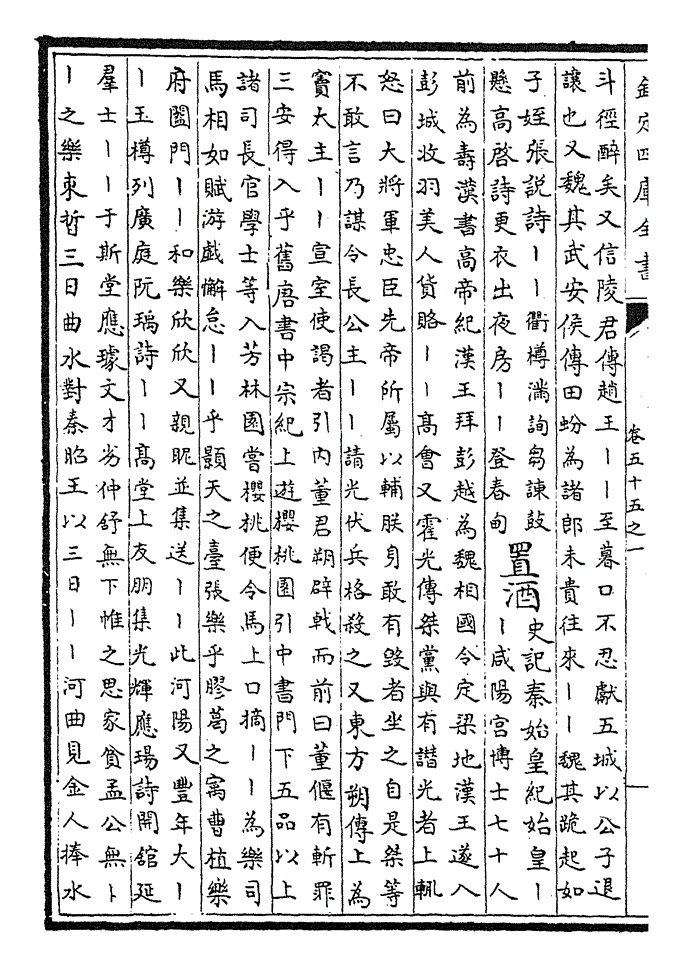 欽定四庫全書
卷五十五之一
斗徑醉矣又信陵君傳趙王丨丨至暮口不忍獻五城以公子退
讓也又魏其武安侯傳田蚡為諸郎未貴往來丨丨魏其跪起如
子姪張說詩丨丨衢樽滿詢芻諫鼓
懸高啓詩更衣出夜房丨丨登春甸
置酒
史記秦始皇紀始皇丨
丨咸陽宮博士七十人
前為壽漢書高帝紀漢王拜彭越為魏相國令定梁地漢王遂入
彭城收羽美人貨賂丨丨髙會又霍光傳桀黨與有譖光者上輒
怒曰大將軍忠臣先帝所屬以輔朕身敢有毀者坐之自是桀等
不敢言乃謀令長公主丨丨請光伏兵格殺之又東方朔傳上為
竇太主丨丨宣室使謁者引內董君朔辟戟而前曰董偃有斬罪
三安得入乎舊唐書中宗紀上遊櫻桃園引中書門下五品以上
諸司長官學士等入芳林園嘗櫻桃便令馬上口摘丨丨為樂司
馬相如賦游戲懈怠丨丨乎顥天之臺張樂乎膠葛之㝢曹植樂
府闔門丨丨和樂欣欣又親昵並集送丨丨此河陽又豐年大丨
丨玉樽列廣庭阮瑀詩丨丨高堂上友朋集光輝應瑒詩開館延
羣士丨丨于斯堂應璩文才劣仲舒無下帷之思家貧孟公無丨
丨之樂束晳三日曲水對秦昭王以三日丨丨河曲見金人捧水